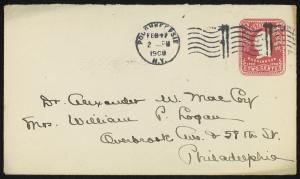 POUGHKEEPSIE
FEB 17
2 - PM
1908
N.Y.
TWO CENTS
Dr. Alexander W. MacCoy
Mrs. William P. Logan
Overbrook Ave. & 59th St.
Philadelphia